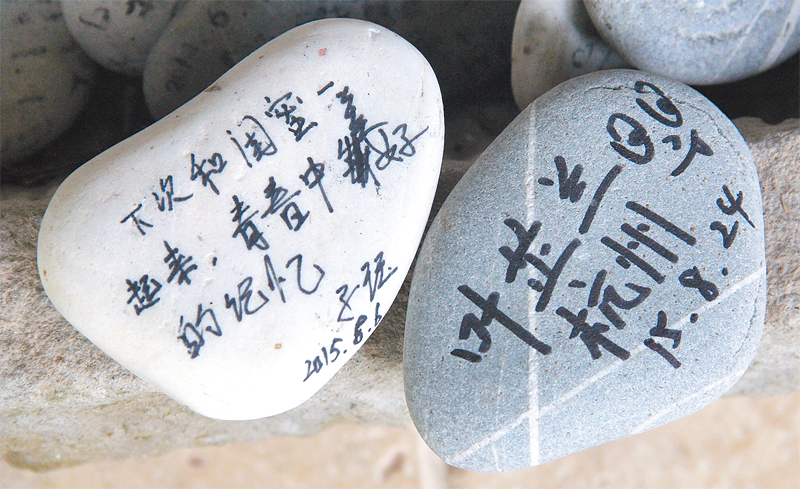 下次和闺蜜一
起来,青春中美好
的记忆
2015.8.6
叶芷兰
杭州
15.8.24